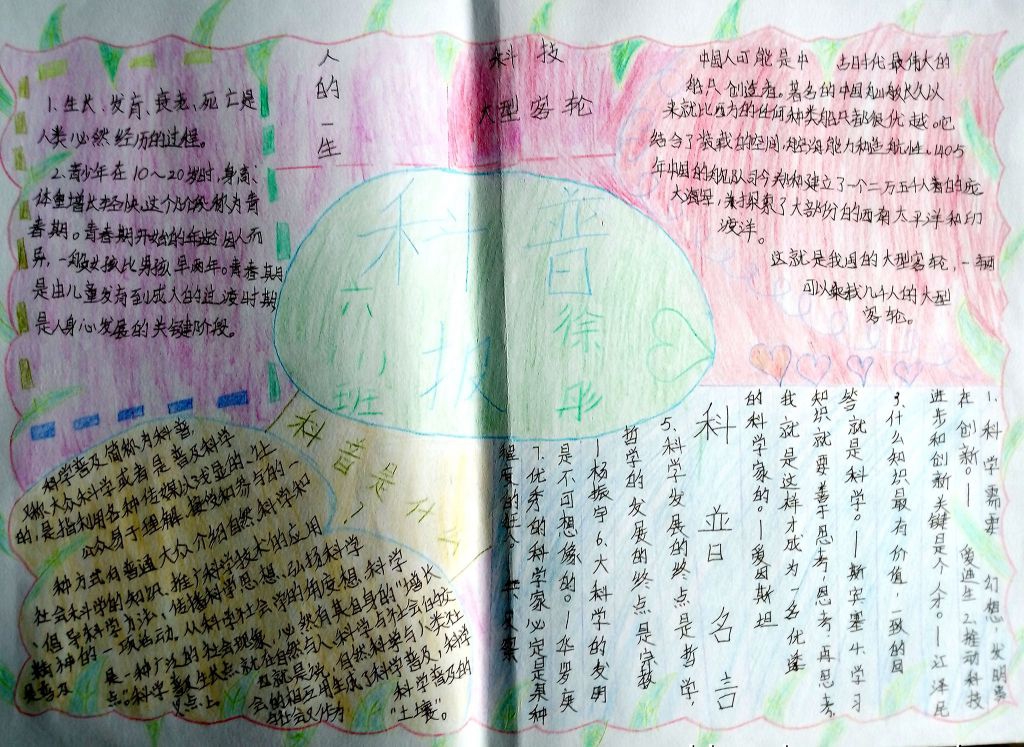 人的一生
1.生长、发育、衰老、死亡是
人类必然经历的过程。
2.青少年在10~20岁时,身高、
体重增长较快,这个阶段称为青
春期。青春期开始的年龄因人而
异,一般女孩比男孩早两年。青春期
是由儿童发育到成人的过渡时期
是人身心发展的关键阶段。
科技
大型客轮
中国人可能是中 古时代最伟大的
船只创造者。著名的中国帆船长久以
来就比西方的任何种类船只都很优越。它
结合了装载的空间,
年中国的舰队司令郑和建立了一个二万五千人著的庞
大海军,来探索了大部份的西南太平洋和印
度洋。
这就是我国的大型客轮,一辆
可以乘载几千人的大型
客轮。
科普
报
六
班
徐彤
科普是什么
科学普及简称为科普,
又称大众科学或者是普及科学
的,是指利用各种传媒以浅显的、让
公众易于理解、接受和参与的一
种方式向普通大众介绍自然科学和
社会科学的知识、推广科学技术的应用
、倡导科学方法、传播科学思想、弘扬科学
精神的一项活动,从科学社会学的角度想,科学
是普及 是一种广泛的社会现象,必然有其自身的"增长
点。科学普及生长点就在自然与人、科学与社会的交
叉点上。也就是说,自然科学与人类社
会的相互作用生成了科学普及,科学
与社会又作为 科学普及的
"土壤"。
科普名言
1.科学需要幻想,发明贵
在创新。——爱迪生 2.推动科技
进步和创新关键是个人才。——江泽民
3.什么知识最有价值,一致的回
答就是科学。——斯宾塞 4.学习
知识就要善于思考,思考,再思考。
我就是这样才成为一名优逢
的科学家的。——爱因斯坦
5.科学发展的终点是哲学,
哲学的发展的终点是宗教
——杨振宇 6.大科学的发明
是不可想缘的。——华罗庚
7.优秀的科学家必定是某种
程度的狂人。